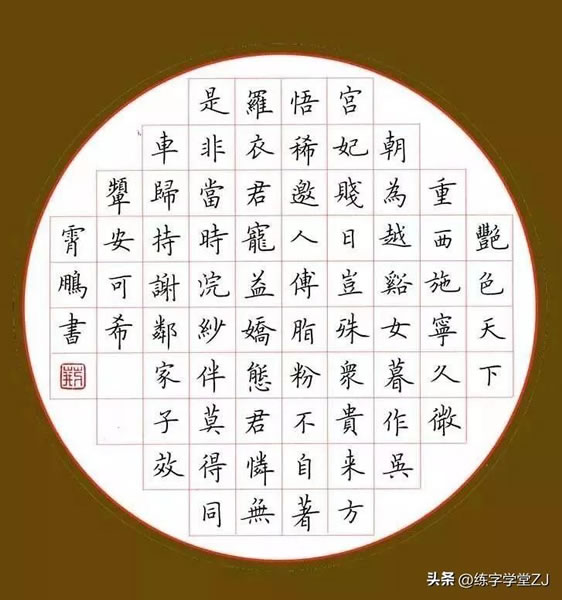 艷色天下
重西施寧久微
朝為越谿女暮作吳
宮妃賤日豈殊衆貴来方
悟稀邀人傅脂粉不自著
羅衣君寵益嬌態君憐無
是非當時浣紗伴莫得同
車歸持謝鄰家子效
顰安可希
霄鵬書
头条 @练字学堂ZJ